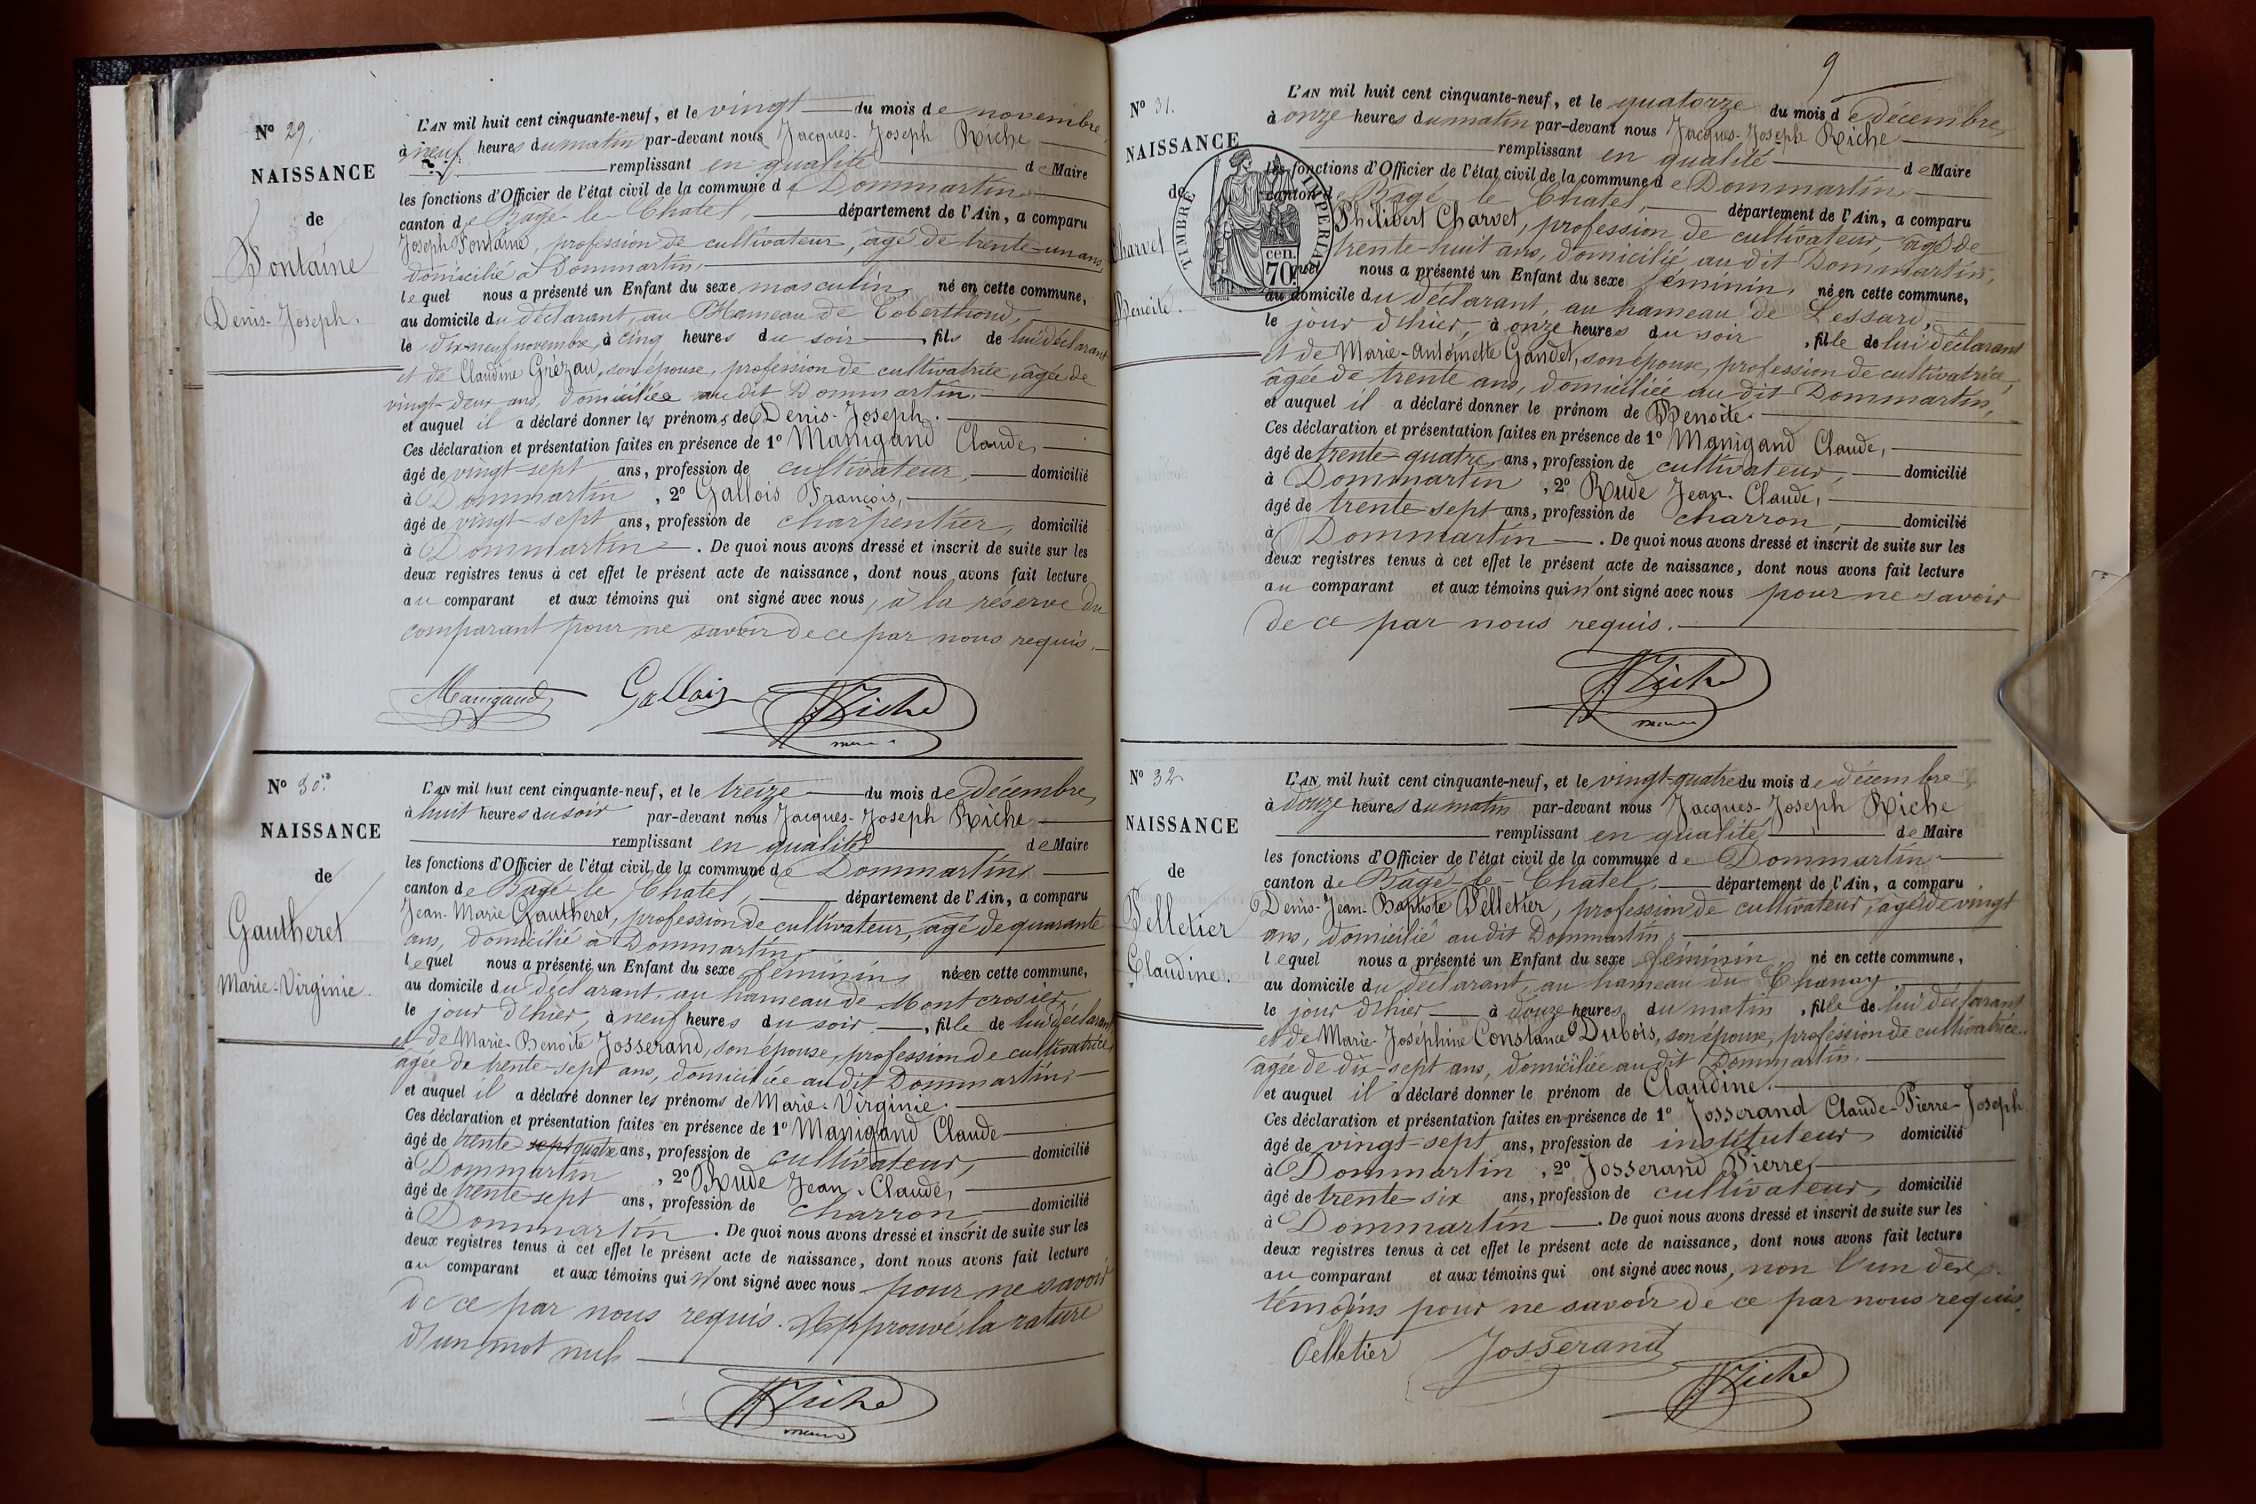 N° 29.
NAISSANCE
de
Fontaine
Denis-Joseph.
L'AN mil huit cent cinquante-neuf, et le vingt du mois de novembre,
à neuf heures du matin par-devant nous Jacques-Joseph Riche
remplissant en qualité de Maire
les fonctions d'Officier de l'état civil de la commune de Dommartin
canton de Bagé-le-Chatel, département de l'Ain, a comparu
Joseph Fontaine, profession de cultivateur, âgé de trente-un ans,
domicilié à Dommartin,
lequel nous a présenté un Enfant du sexe masculin, né en cette commune,
au domicile du déclarant, au Hameau de Coberthoud,
le dix-neuf novembre, à cinq heures du soir, fils de lui déclarant
et de Claudine Grézaud, son épouse, profession de cultivatrice, âgée de
vingt-deux ans, domiciliée audit Dommartin,
et auquel il a déclaré donner les prénoms de Denis-Joseph.
Ces déclaration et présentation faites en présence de 1° Manigand Claude,
âgé de vingt-sept ans, profession de cultivateur, domicilié
à Dommartin, 2° Gallois François,
âgé de vingt-sept ans, profession de charpentier, domicilié
à Dommartin. De quoi nous avons dressé et inscrit de suite sur les
deux registres tenus à cet effet le présent acte de naissance, dont nous avons fait lecture
au comparant et aux témoins qui ont signé avec nous, à la réserve du
comparant pour ne savoir de ce par nous requis.
Manigand Gallois Riche
maire
N° 30.
NAISSANCE
de
Gautheret
Marie-Virginie.
L'AN mil huit cent cinquante-neuf, et le treize du mois de décembre,
à huit heures du soir par-devant nous Jacques-Joseph Riche
remplissant en qualité de Maire
les fonctions d'Officier de l'état civil de la commune de Dommartin
canton de Bagé-le-Chatel, département de l'Ain, a comparu
Jean-Marie Gautheret, profession de cultivateur, âgé de quarante
ans, domicilié à Dommartin,
lequel nous a présenté un Enfant du sexe féminin, né en cette commune,
au domicile du déclarant, au hameau de Montcrosier,
le jour d'hier, à neuf heures du soir, fille de lui déclarant
et de Marie-Benoîte Josserand, son épouse, profession de cultivatrice,
âgée de trente-sept ans, domiciliée audit Dommartin,
et auquel il a déclaré donner les prénoms de Marie-Virginie.
Ces déclaration et présentation faites en présence de 1° Manigand Claude
âgé de trente sept quatre ans, profession de cultivateur, domicilié
à Dommartin, 2° Rude Jean-Claude,
âgé de trente-sept ans, profession de charron, domicilié
à Dommartin. De quoi nous avons dressé et inscrit de suite sur les
deux registres tenus à cet effet le présent acte de naissance, dont nous avons fait lecture
au comparant et aux témoins qui n'ont signé avec nous pour ne savoir
de ce par nous requis. Approuvé la rature
d'un mot nul.
Riche
maire
9
N° 31.
NAISSANCE
de
Charvet
Benoite.
TIMBRE IMPERIAL
70 cen.
L'AN mil huit cent cinquante-neuf, et le quatorze du mois de décembre,
à onze heures du matin par-devant nous Jacques-Joseph Riche
remplissant en qualité de Maire
les fonctions d'Officier de l'état civil de la commune de Dommartin
canton de Bagé-le-Chatel, département de l'Ain, a comparu
Philibert Charvet, profession de cultivateur, âgé de
trente-huit ans, domicilié audit Dommartin,
lequel nous a présenté un Enfant du sexe féminin, né en cette commune,
au domicile du déclarant, au hameau de Lessard,
le jour d'hier, à onze heures du soir, fille de lui déclarant
et de Marie-Antoinette Gandet, son épouse, profession de cultivatrice,
âgée de trente ans, domiciliée audit Dommartin,
et auquel il a déclaré donner le prénom de Benoite.
Ces déclaration et présentation faites en présence de 1° Manigand Claude,
âgé de trente-quatre ans, profession de cultivateur, domicilié
à Dommartin, 2° Rude Jean-Claude,
âgé de trente-sept ans, profession de charron, domicilié
à Dommartin. De quoi nous avons dressé et inscrit de suite sur les
deux registres tenus à cet effet le présent acte de naissance, dont nous avons fait lecture
au comparant et aux témoins qui n'ont signé avec nous pour ne savoir
de ce par nous requis.
Riche
maire
N° 32
NAISSANCE
de
Pelletier
Claudine.
L'AN mil huit cent cinquante-neuf, et le vingt-quatre du mois de décembre
à douze heures du matin par-devant nous Jacques-Joseph Riche
remplissant en qualité de Maire
les fonctions d'Officier de l'état civil de la commune de Dommartin
canton de Bagé-le-Chatel, département de l'Ain, a comparu
Denis-Jean-Baptiste Pelletier, profession de cultivateur, âgé de vingt
ans, domicilié audit Dommartin,
lequel nous a présenté un Enfant du sexe féminin, né en cette commune,
au domicile du déclarant, au hameau du Chanay
le jour d'hier à douze heures du matin, fille de lui déclarant
et de Marie-Joséphine Constance Dubois, son épouse, profession de cultivatrice,
âgée de dix-sept ans, domiciliée audit Dommartin,
et auquel il a déclaré donner le prénom de Claudine.
Ces déclaration et présentation faites en présence de 1° Josserand Claude-Pierre-Joseph
âgé de vingt-sept ans, profession de instituteur domicilié
à Dommartin, 2° Josserand Pierre,
âgé de trente-six ans, profession de cultivateur, domicilié
à Dommartin. De quoi nous avons dressé et inscrit de suite sur les
deux registres tenus à cet effet le présent acte de naissance, dont nous avons fait lecture
au comparant et aux témoins qui ont signé avec nous, non l'un des
témoins pour ne savoir de ce par nous requis.
Pelletier Josserand Riche